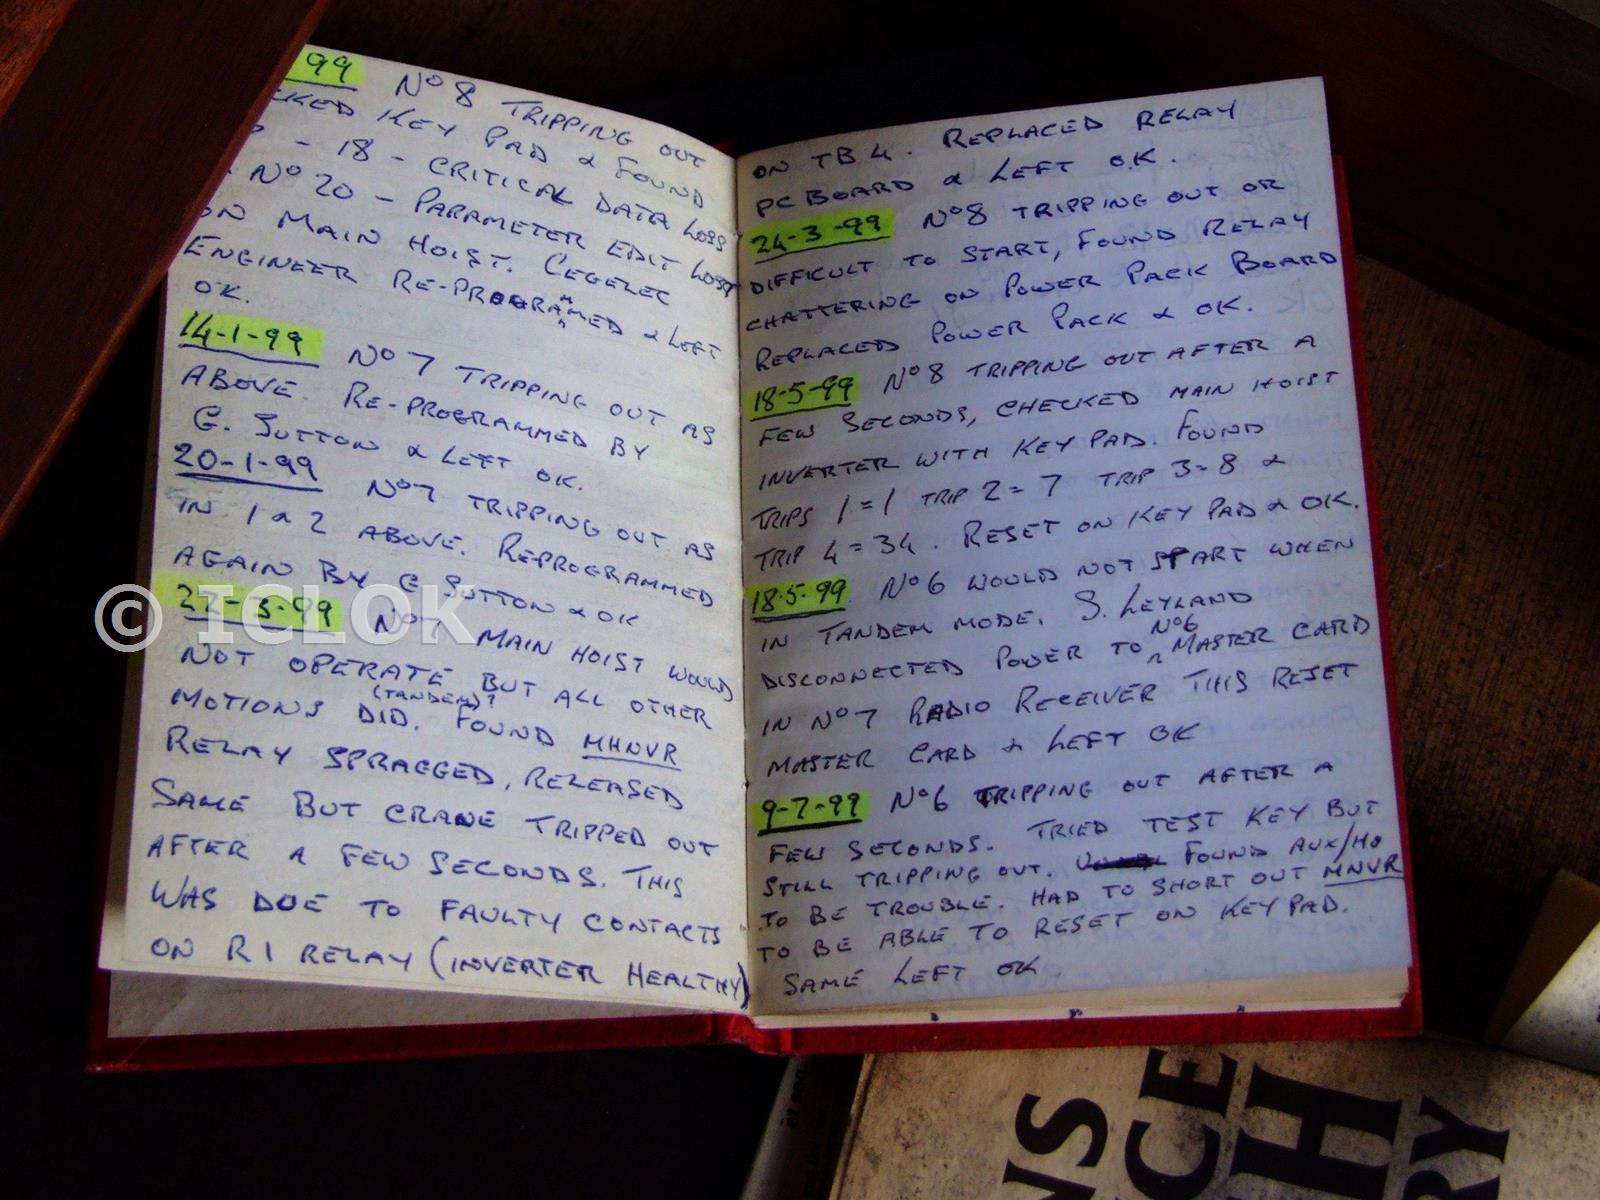 99 No 8 TRIPPING OUT
KEY PAD & FOUND
- 18 - CRITICAL DATA LOSS
No 20 - PARAMETER EDIT LOST
ON MAIN HOIST. CEGELEC
ENGINEER RE-PROGRAMMED & LEFT
OK.
14-1-99 No 7 TRIPPING OUT AS
ABOVE. RE-PROGRAMMED BY
G. SUTTON & LEFT OK.
20-1-99 No 7 TRIPPING OUT AS
IN 1 & 2 ABOVE. REPROGRAMMED
AGAIN BY G SUTTON & OK
22-3-99 No 7 MAIN HOIST WOULD
NOT OPERATE BUT ALL OTHER
(TANDEM)?
MOTIONS DID. FOUND MHNVR
RELAY SPRAGGED, RELEASED
SAME BUT CRANE TRIPPED OUT
AFTER A FEW SECONDS. THIS
WAS DUE TO FAULTY CONTACTS
ON R1 RELAY (INVERTER HEALTHY)
ON TB4. REPLACED RELAY
PC BOARD & LEFT O.K.
24-3-99 No 8 TRIPPING OUT OR
DIFFICULT TO START, FOUND RELAY
CHATTERING ON POWER PACK BOARD
REPLACED POWER PACK & OK.
18-5-99 No 8 TRIPPING OUT AFTER A
FEW SECONDS, CHECKED MAIN HOIST
INVERTER WITH KEY PAD. FOUND
TRIPS 1=1 TRIP 2=7 TRIP 3=8 &
TRIP 4=34. RESET ON KEY PAD & OK.
18.5.99 No 6 WOULD NOT START WHEN
IN TANDEM MODE. S. LEYLAND
DISCONNECTED POWER TO No 6 MASTER CARD
IN No 7 RADIO RECEIVER THIS RESET
MASTER CARD & LEFT OK
9-7-99 No 6 TRIPPING OUT AFTER A
FEW SECONDS. TRIED TEST KEY BUT
STILL TRIPPING OUT. FOUND AUX/HO
TO BE TROUBLE. HAD TO SHORT OUT MNVR
TO BE ABLE TO RESET ON KEY PAD.
SAME LEFT OK
© ICLOK